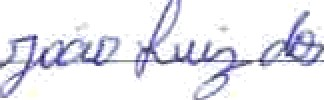 João Luiz dos